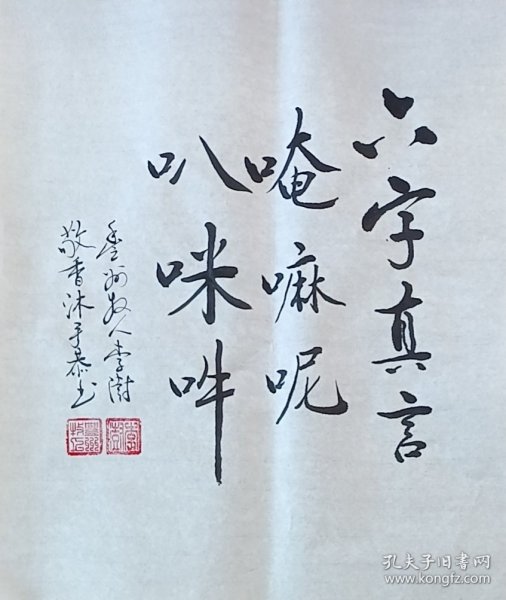 六字真言
唵嘛呢
叭咪吽
州牧人李澍
敬香沐手恭书
孔夫子旧书网
www.kongfz.com